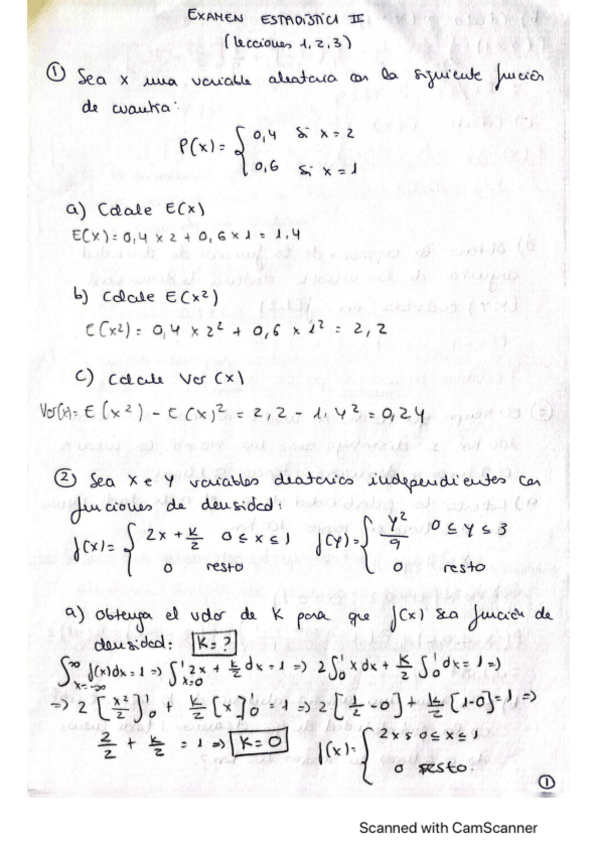 EXAMEN ESTADÍSTICA II
(lecciones 1,2,3)
① Sea x una variable aleatoria con la siguiente función
de cuantía:
P(x) = { 0,4 si x = 2
0,6 si x = 1
a) Calcule E(x)
E(x) = 0,4 x 2 + 0,6 x 1 = 1,4
b) Calcule E(x²)
E(x²) = 0,4 x 2² + 0,6 x 1² = 2,2
c) Calcule Var(x)
Var(x) = E(x²) - E(x)² = 2,2 - 1,4² = 0,24
② Sea x e y variables aleatorias independientes con
funciones de densidad:
f(x) = { 2x + k/2 0 ≤ x ≤ 1 f(y) = { y²/9 0 ≤ y ≤ 3
0 resto 0 resto
a) Obtenga el valor de K para que f(x) sea función de
densidad: K = ?
∫_{x=-∞}^{∞} f(x)dx = 1 => ∫_{x=0}^{1} 2x + k/2 dx = 1 => 2∫_0^1 x dx + k/2 ∫_0^1 dx = 1 =>
=> 2 [x²/2]_0^1 + k/2 [x]_0^1 = 1 => 2 [1/2 - 0] + k/2 [1-0] = 1 =>
2/2 + k/2 = 1 => K = 0 f(x) = { 2x si 0 ≤ x ≤ 1
0 resto.
①
Scanned with CamScanner